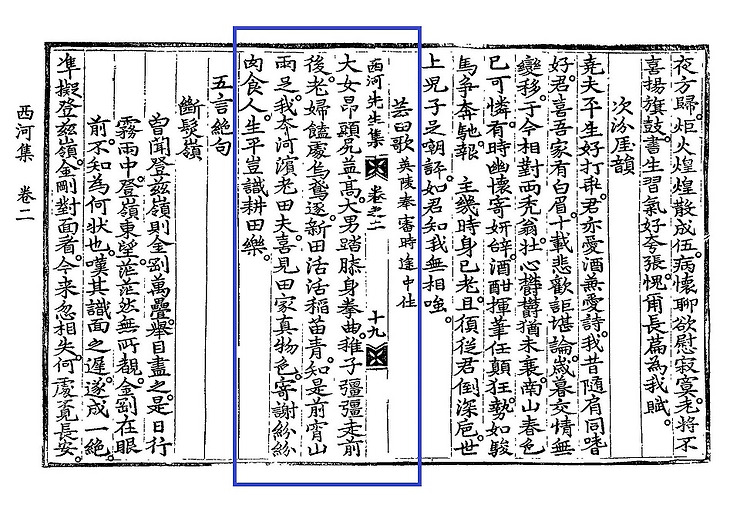 夜方歸炬火煌煌散成伍病懷聊欲慰寂寞老將不
喜揚旗鼓書生習氣好夸張愧爾長篇為我賦
次汾厓韻
堯夫平生好打乖君亦愛酒無愛詩我昔隨肩同嗜
好君喜吾家有白眉十載悲歡詎堪論歲暮交情無
變移于今相對兩禿翁壯心欝欝猶未衰南山春色
已可憐有時幽懷寄妍辭酒酣揮筆任顛狂勢如駿
馬爭奔馳報 主幾時身已老且須從君倒深卮世
上兒子足嘲評如君知我無相嗤
芸田歌 英陵奉審時途中作
西河先生集 卷之二 十九
大女昂頭髻益高大男踏膝身拳曲稚子彊彊走前
後老婦饁處烏鳶逐新田活活稻苗青知是前宵山
雨足我本河濱老田夫喜見田家真物色寄謝紛紛
肉食人生平豈識耕田樂
五言絶句
斷髮嶺
曾聞登玆嶺則金剛萬疊舉目盡之是日行
霧雨中登嶺東望茫茫然無所覩金剛在眼
前不知為何狀也嘆其識面之遲遂成一絶
準擬登玆嶺金剛對面看今來忽相失何處覓長安
西河集 卷二